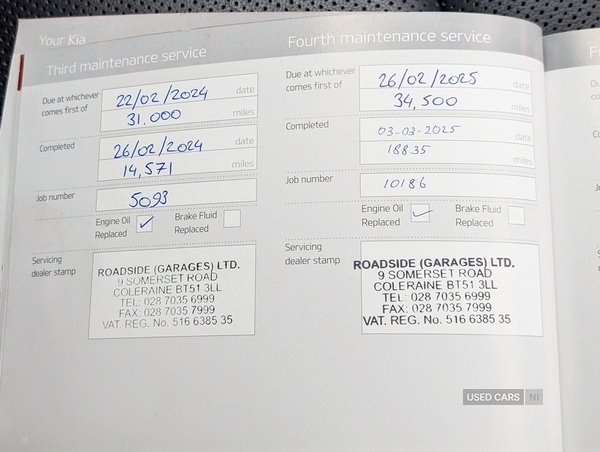 Your Kia
Third maintenance service
Due at whichever
comes first of
22/02/2024 date
31.000 miles
Completed
26/02/2024 date
14,571 miles
Job number
5093
Engine Oil
Replaced
✓
Brake Fluid
Replaced
Servicing
dealer stamp
ROADSIDE (GARAGES) LTD.
9 SOMERSET ROAD
COLERAINE BT51 3LL
TEL: 028 7035 6999
FAX: 028 7035 7999
VAT. REG. No. 516 6385 35
Fourth maintenance service
Due at whichever
comes first of
26/02/2025 date
34,500 miles
Completed
03-03-2025 date
18835 miles
Job number
10186
Engine Oil
Replaced
✓
Brake Fluid
Replaced
Servicing
dealer stamp
ROADSIDE (GARAGES) LTD.
9 SOMERSET ROAD
COLERAINE BT51 3LL
TEL: 028 7035 6999
FAX: 028 7035 7999
VAT. REG. No. 516 6385 35
USED CARS NI